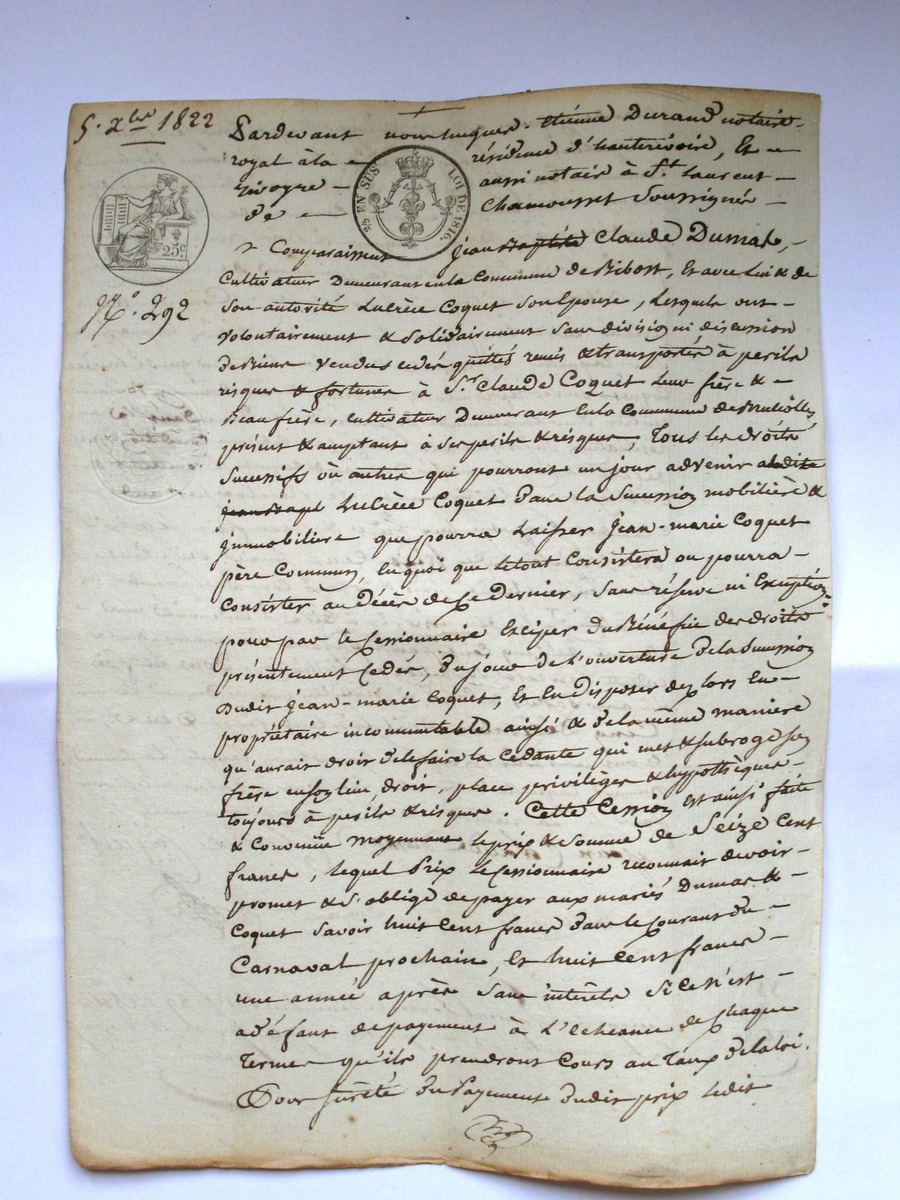 5. Xbre 1822
Pardevant nous hugues-étienne Durand notaire
royal à la résidence d'hauterivoire, Et
aussi notaire à St. Laurent
de Chamousset Soussignés
25c.
¼ EN SUS LOI DE 1816.
No. 292
Comparaissent jean Baptiste Claude Dumas,
Cultivateur Demeurant en la Commune de Ribost, Et avec Lui & de
Son autorité Lucrèce Coquet Son Epouse, Lesquels ont
volontairement & Solidairement Sans division ni discussion
de Biens vendus cedés quittés remis & transportés à perils
risques & fortunes à Sr. Claude Coquet Leur frère &
Beaufrère, cultivateur Demeurant En la Commune de Brulliolles
présent & acceptant à Ses perils & risques, Tous les droits
Successifs où autres qui pourront un jour advenir a ladite
Lucrèce Coquet Dans la Succession mobilière &
jmmobilière que pourra Laisser jean-marie Coquet
père Commun, En quoi que le tout Consistera ou pourra
Consister au Décès de Ce Dernier, Sans réserve ni Exception
pour par le Cessionnaire Exciper du Bénéfice des droits
présentement Cedés, Du jour de L'ouverture De la Succession
Dudit jean-marie Coquet, Et En Disposer dez Lors En
propriétaire incommutable ainsi & De la même manière
qu'aurait droit De le faire la Cédante qui met & subroge Son
frère en Son lieu, droit, place privilèges & hypothèques
toujours à perils & risques. Cette Cession Est ainsi faite
& Convenüe moyennant le prix & Somme de Seize Cent
francs, lequel Prix le Cessionnaire reconnait devoir
promet & S'oblige de payer aux mariés Dumas &
Coquet Savoir huit Cent francs Dans le Courant du
Carnaval prochain, Et huit Cent francs
une année après Sans intérêts Si Ce n'est
a Défaut de payement à L'échéance de Chaque
Termes qu'ils prendront Cours au Taux De la loi.
Pour Sureté Du Payement Dudit prix ledit